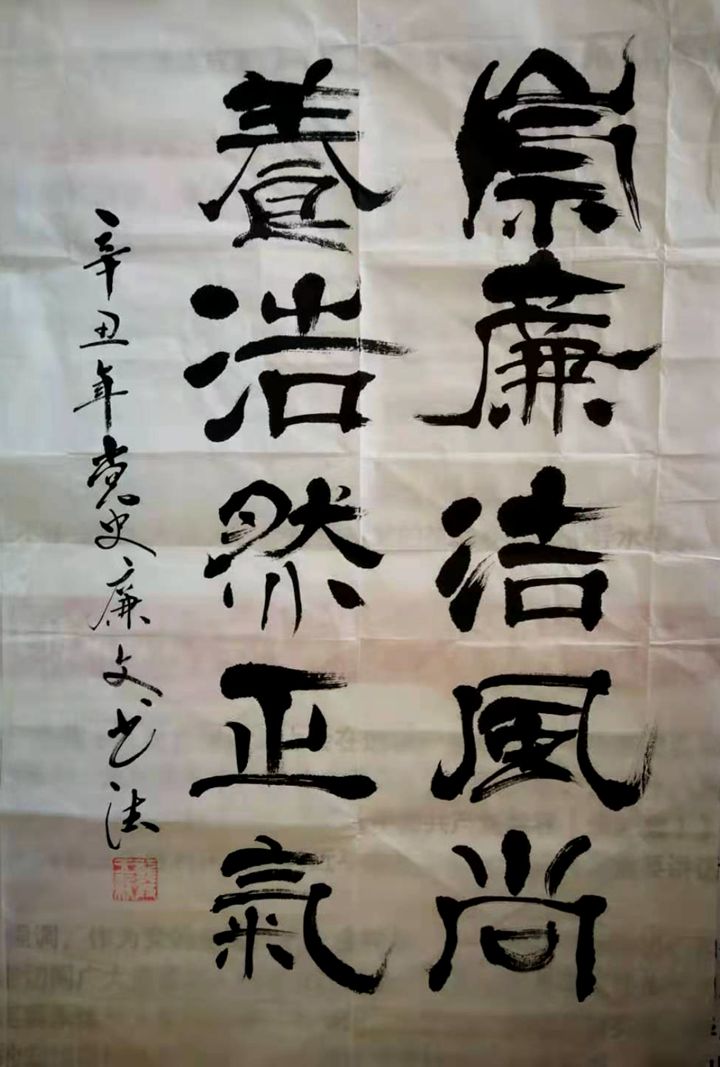 崇廉洁風尚
養浩然正氣
辛丑年党史廉文书法